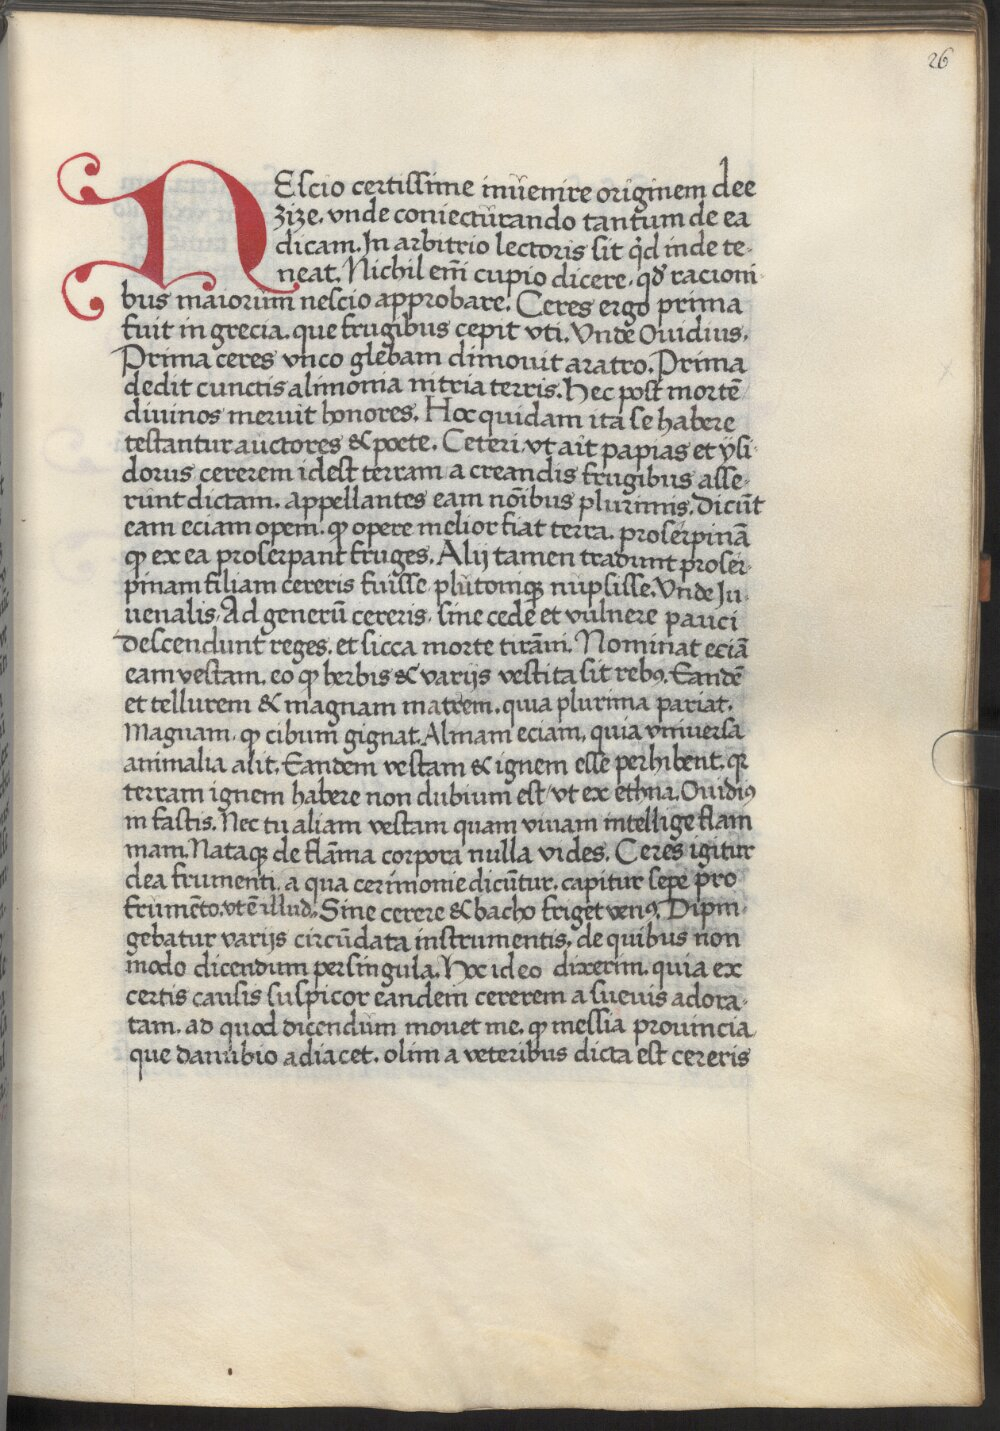 26
NEscio certissime inuenire originem dee
zize. vnde coniecturando tantum de ea
dicam. In arbitrio lectoris sit qd inde te-
neat. Nichil em̄ cupio dicere. qd racioni-
bus maiorum nescio approbare. Ceres ergo prima
fuit in grecia. que frugibus cepit vti. Vnde Ouidius.
Prima ceres vnco glebam dimouit aratro. Prima
dedit cunctis alimonia mitria terris. Hec post mortē
diuinos meruit honores. Hoc quidam ita se habere
testantur auctores & poete. Ceteri. vt ait papias et ysi-
dorus cererem idest terram a creandis frugibus asse-
runt dictam. appellantes eam noībus plurimis. Dicūt
eam eciam opem. ꝙ opere melior fiat terra. proserpinā
ꝙ ex ea proserpant fruges. Alij tamen tradunt proser-
pinam filiam cereris fuisse plutoniqꝫ nupsisse. Vnde Ju-
uenalis. Ad generū cereris. sine cede et vulnere pauci
descendunt reges. et sicca morte tirāni. Nominat eciā
eam vestam. eo ꝙ herbis & varijs vestita sit rebꝰ. Eandē
et tellurem & magnam matrem. quia plurima pariat.
Magnam. ꝙ cibum gignat. Almam eciam. quia vniuersa
animalia alit. Eandem vestam & ignem esse perhibent. qꝛ
terram ignem habere non dubium est vt ex ethna. Ouidiꝰ
in fastis. Nec tu aliam vestam quam viuam intellige flam
mam. Nataqꝫ de flāma corpora nulla vides. Ceres igitur
dea frumenti. a qua cerimonie dicūtur. capitur sepe pro
frumēto. vt ē illud. Sine cerere & bacho friget venꝰ. Dipin-
gebatur varijs circūdata instrumentis. de quibus non
modo dicendum per singula. Hoc ideo dixerim. quia ex
certis causis suspicor eandem cererem a sueuis adora-
tam. ad quod dicendum mouet me. ꝙ messia prouincia
que danubio adiacet. olim a veteribus dicta est cereris